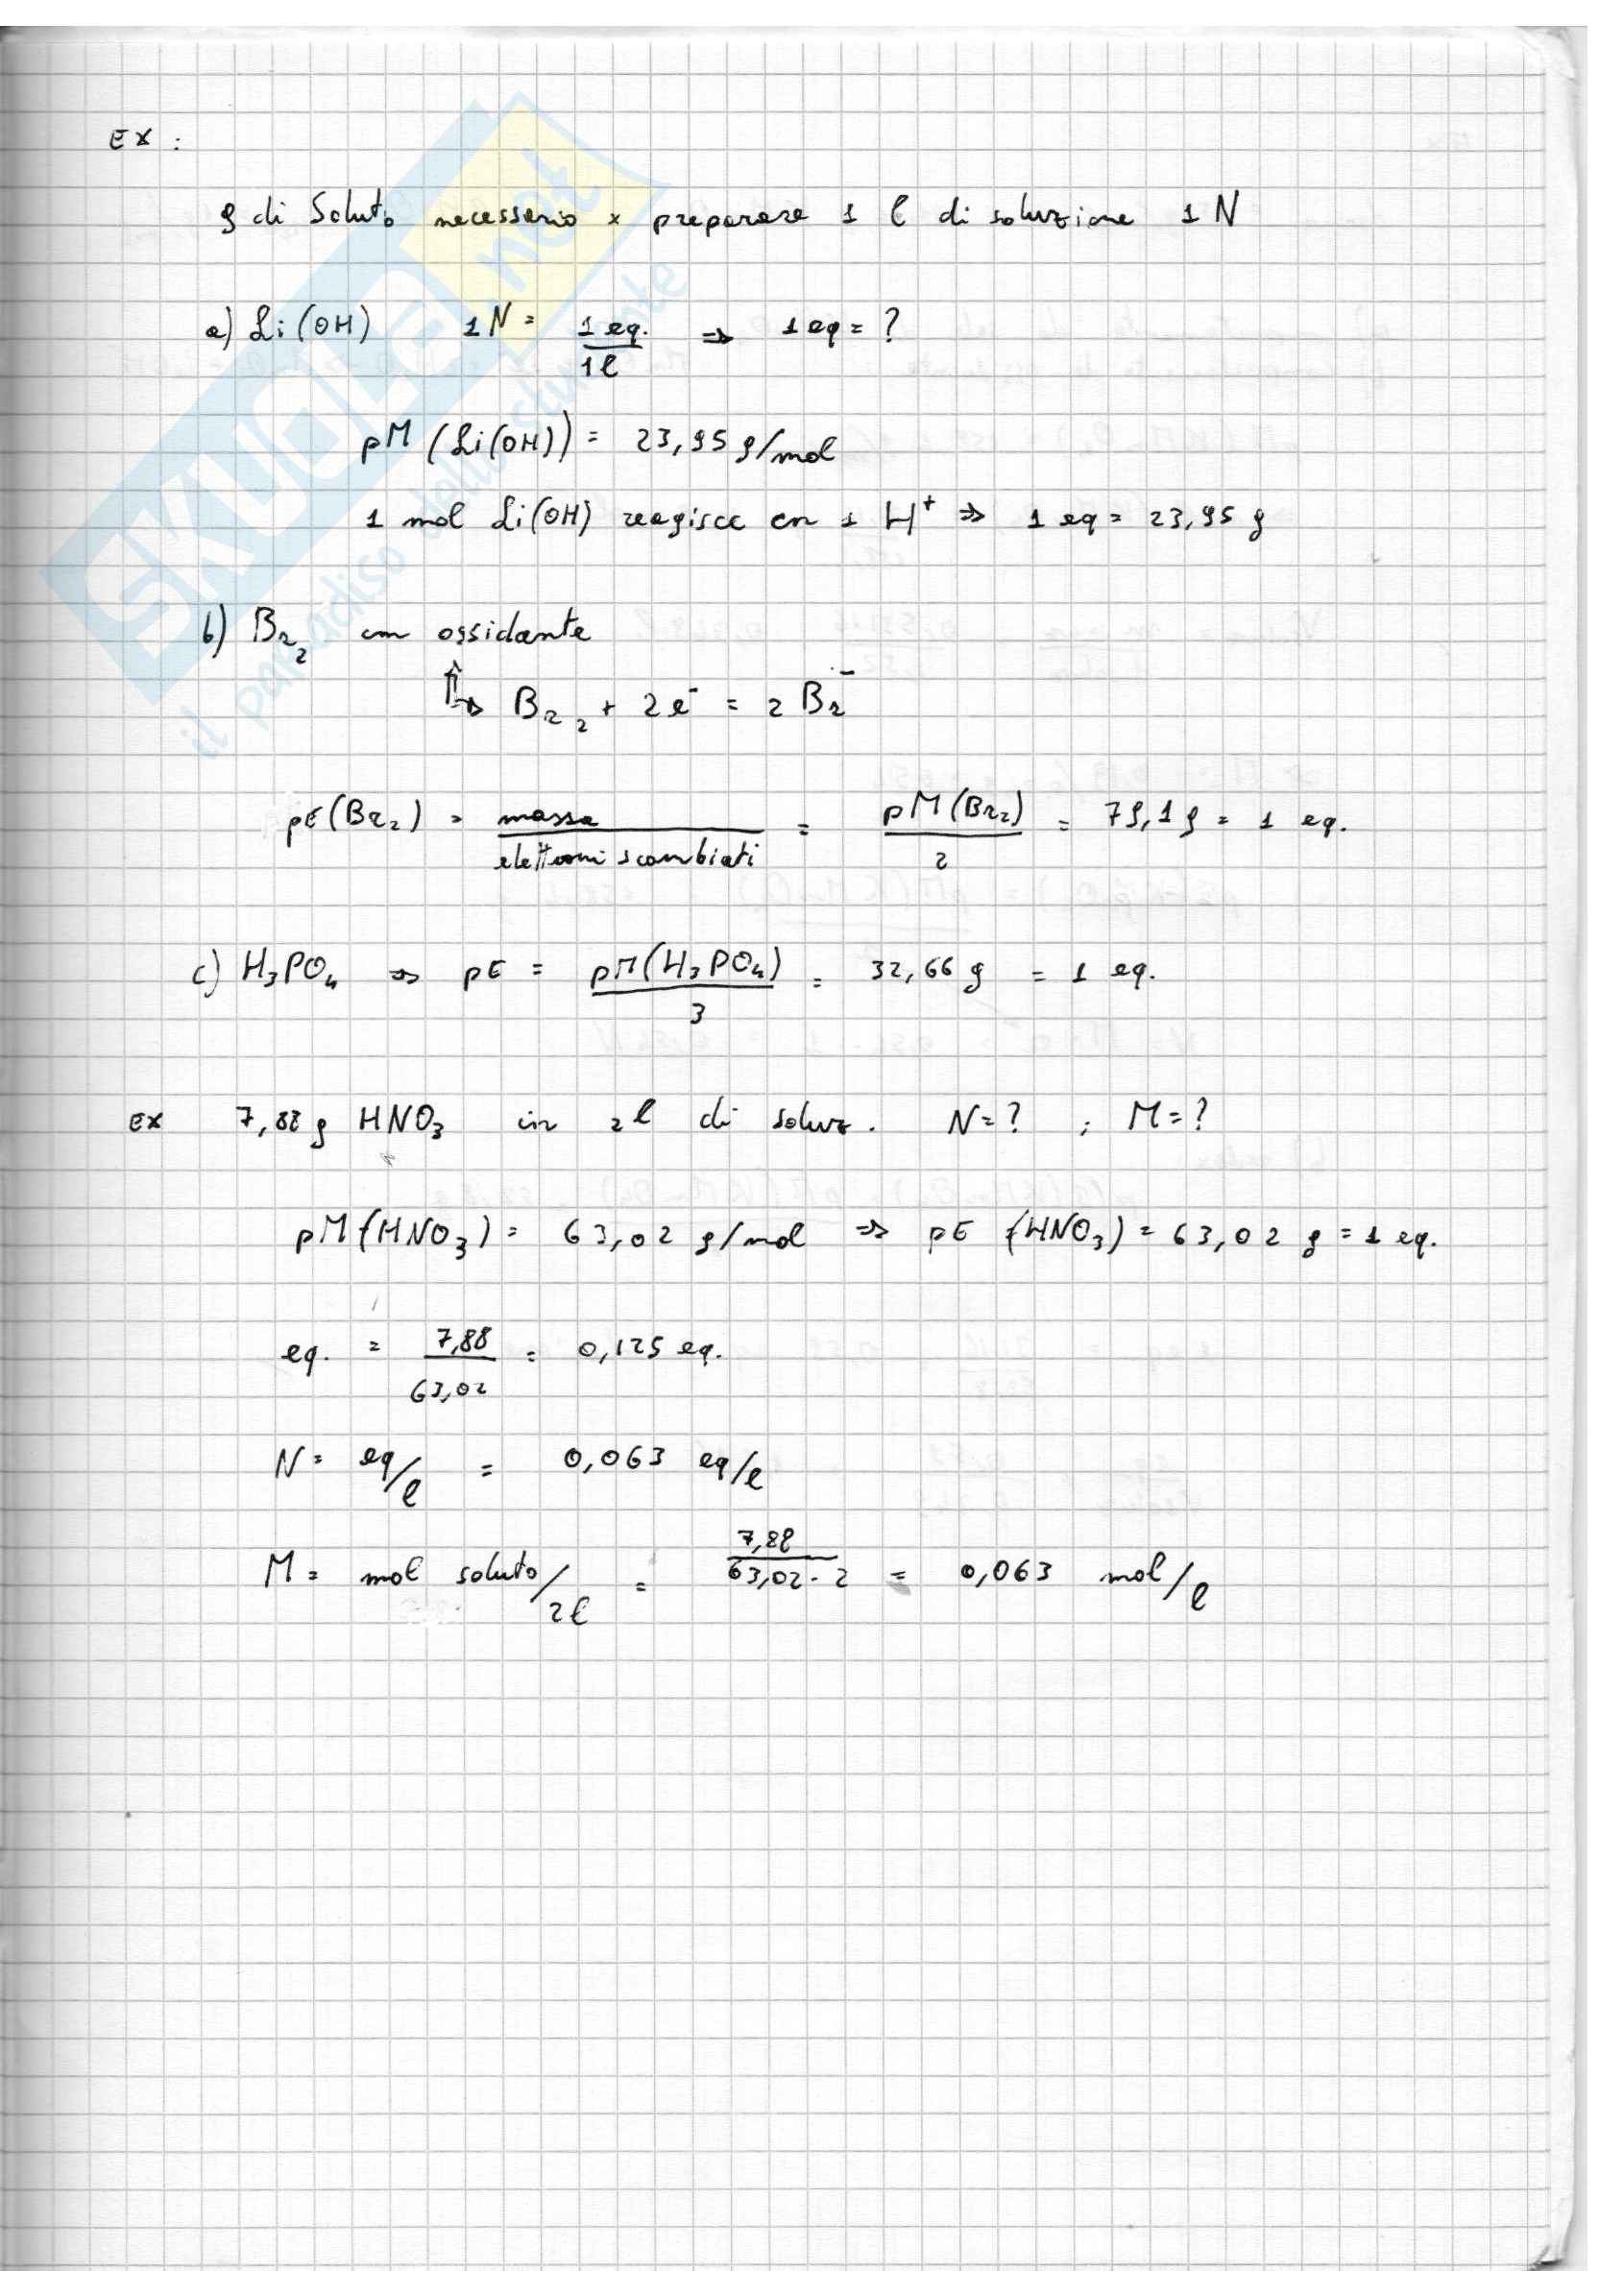 EX :
g di Soluto necessario x preparare 1 l di soluzione 1 N
a) Li(OH) 1N = 1 eq. / 1 l ⇒ 1 eq = ?
pM (Li(OH)) = 23,95 g/mol
1 mol Li(OH) reagisce con 1 H⁺ ⇒ 1 eq = 23,95 g
b) Br₂ com ossidante
↳ Br₂ + 2e⁻ = 2 Br⁻
pE(Br₂) = massa / elettroni scambiati = pM(Br₂) / 2 = 79,1 g = 1 eq.
c) H₃PO₄ ⇒ pE = pM(H₃PO₄) / 3 = 32,66 g = 1 eq.
EX 7,88 g HNO₃ in 2 l di soluz. N = ? ; M = ?
pM(HNO₃) = 63,02 g/mol ⇒ pE (HNO₃) = 63,02 g = 1 eq.
eq. = 7,88 / 63,02 = 0,125 eq.
N = eq/l = 0,063 eq/l
M = mol soluto/2l = 7,88 / 63,02 · 2 = 0,063 mol/l
SKUOLA.net
il paradiso dello studente